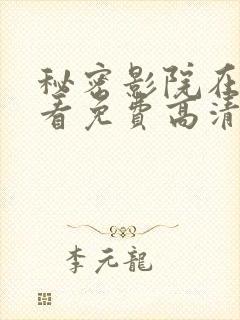 秘密影院在
看免费高清
李元龍